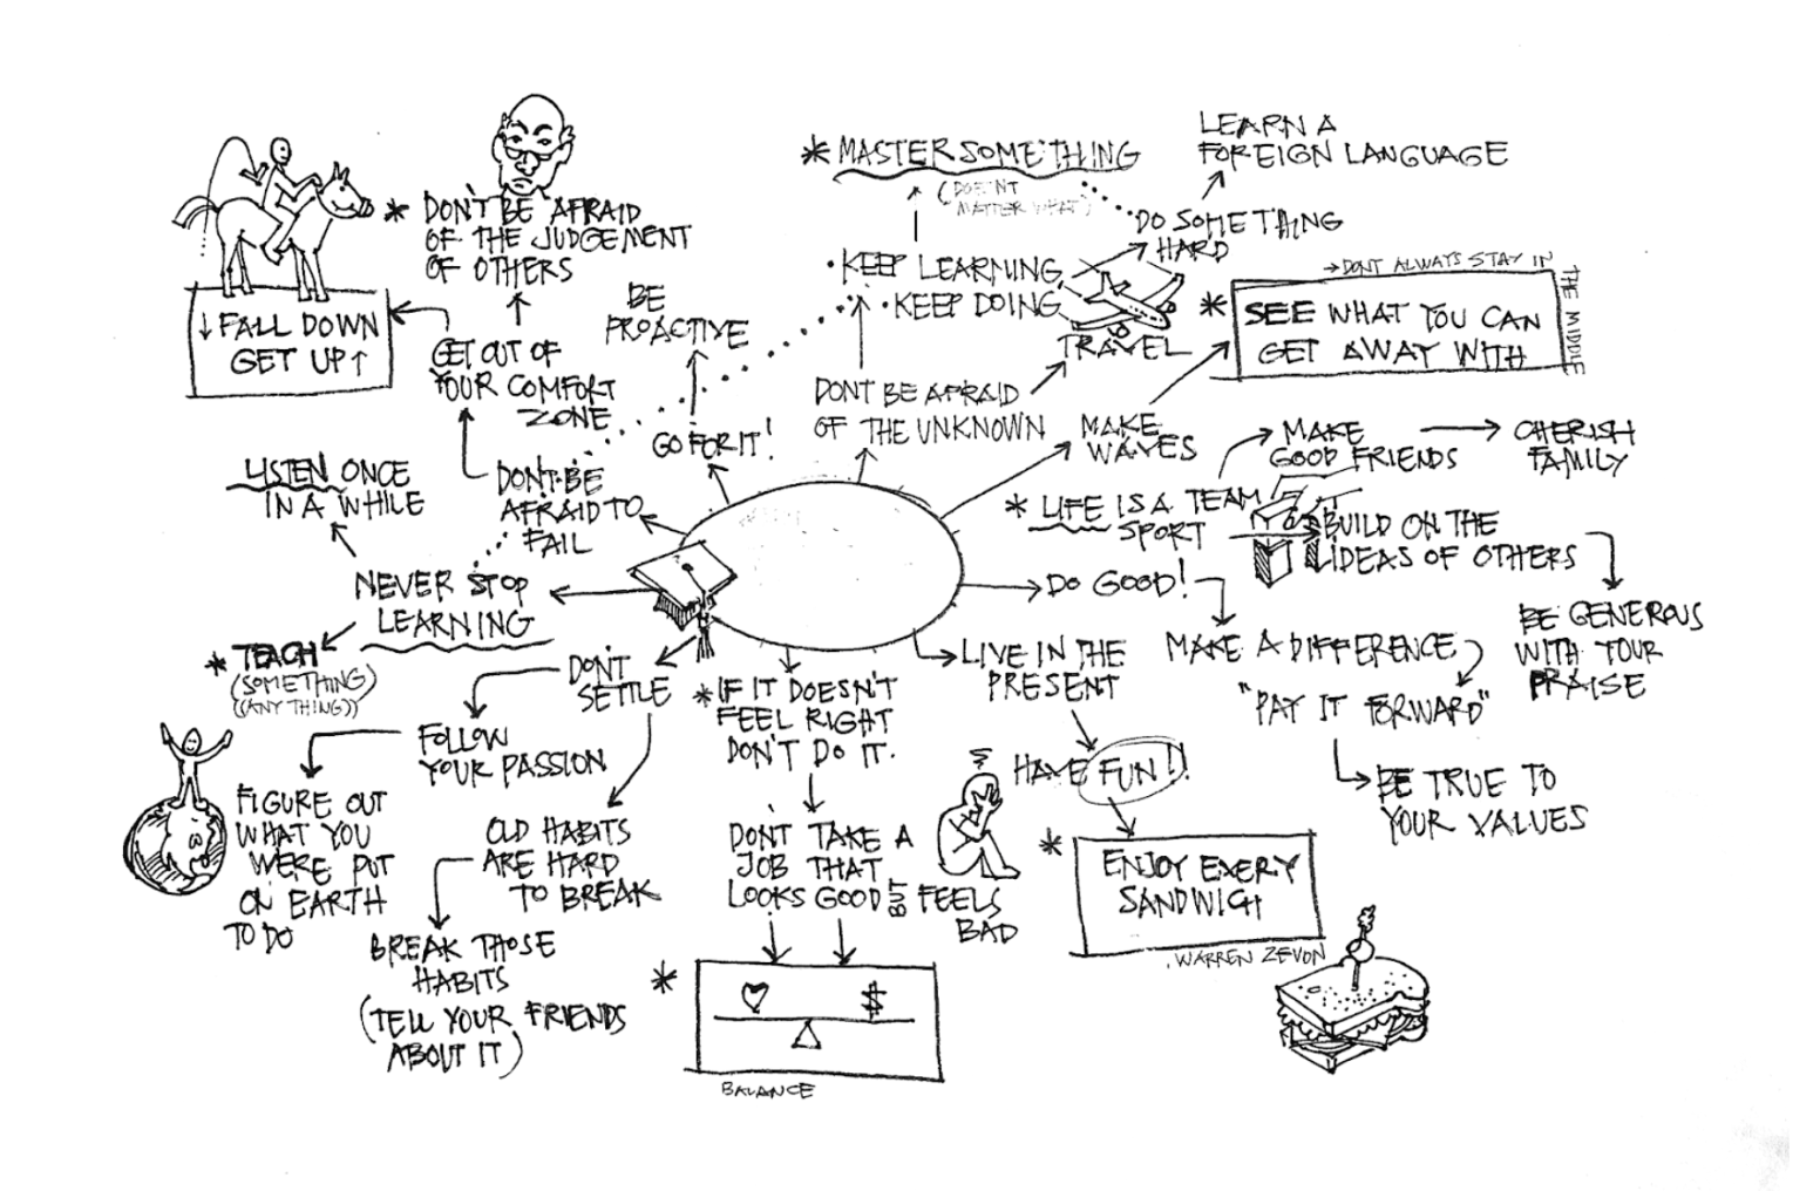 * DON'T BE AFRAID
OF THE JUDGEMENT
OF OTHERS
↓ FALL DOWN
GET UP ↑
GET OUT OF
YOUR COMFORT
ZONE
BE
PROACTIVE
GO FOR IT!
DON'T BE
AFRAID TO
FAIL
LISTEN ONCE
IN A WHILE
NEVER STOP
LEARNING
* TEACH
(SOMETHING)
((ANY THING))
* MASTER SOMETHING
(DOES'NT
MATTER WHAT)
LEARN A
FOREIGN LANGUAGE
DO SOMETHING
HARD
• KEEP LEARNING
• KEEP DOING
TRAVEL
DONT BE AFRAID
OF THE UNKNOWN
MAKE
WAVES
→ DONT ALWAYS STAY IN
THE MIDDLE
* SEE WHAT YOU CAN
GET AWAY WITH
MAKE
GOOD FRIENDS
CHERISH
FAMILY
* LIFE IS A TEAM
SPORT
BUILD ON THE
IDEAS OF OTHERS
BE GENEROUS
WITH YOUR
PRAISE
DO GOOD!
MAKE A DIFFERENCE
"PAY IT FORWARD"
BE TRUE TO
YOUR VALUES
LIVE IN THE
PRESENT
HAVE FUN!!
* ENJOY EVERY
SANDWICH
. WARREN ZEVON
* IF IT DOESN'T
FEEL RIGHT
DON'T DO IT.
DON'T TAKE A
JOB THAT
LOOKS GOOD BUT FEELS
BAD
* $
BALANCE
DON'T
SETTLE
FOLLOW
YOUR PASSION
FIGURE OUT
WHAT YOU
WERE PUT
ON EARTH
TO DO
OLD HABITS
ARE HARD
TO BREAK
BREAK THOSE
HABITS
(TELL YOUR FRIENDS
ABOUT IT)